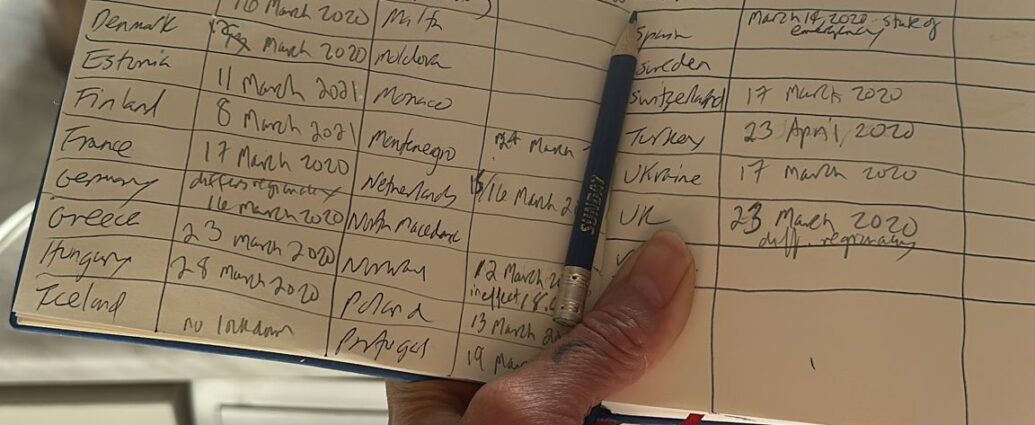 March 2020 Malta
Denmark March 2020 Moldova
Estonia 11 March 2021 Monaco
Finland 8 March 2021 Montenegro 24 March
France 17 March 2020 Netherlands 15/16 March 2
Germany differs regionally
16 March 2020 North Macedonia
Greece 23 March 2020 Norway 12 March 20
in effect 18.
Hungary 28 March 2020 Poland 13 March 20
Iceland no lockdown Portugal 19 Mar
SUNDAY
Spain March 14, 2020 state of
emergency
Sweden
Switzerland 17 March 2020
Turkey 23 April, 2020
Ukraine 17 March 2020
UK 23 March 2020
diff. regionally